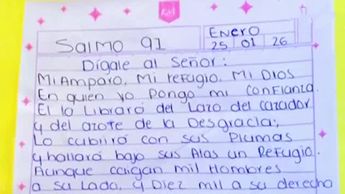 Salmo 91
Enero
25 01 26
Dígale al Señor:
Mi Amparo, Mi refugio, Mi Dios
En quien yo Pongo mi confianza.
El lo Librará del Lazo del cazador
y del azote de la Desgracia;
Lo cubrirá con sus Plumas
y hallará bajo sus Alas un Refugio.
Aunque caigan mil Hombres
a su Lado, y Diez mil a su derecha